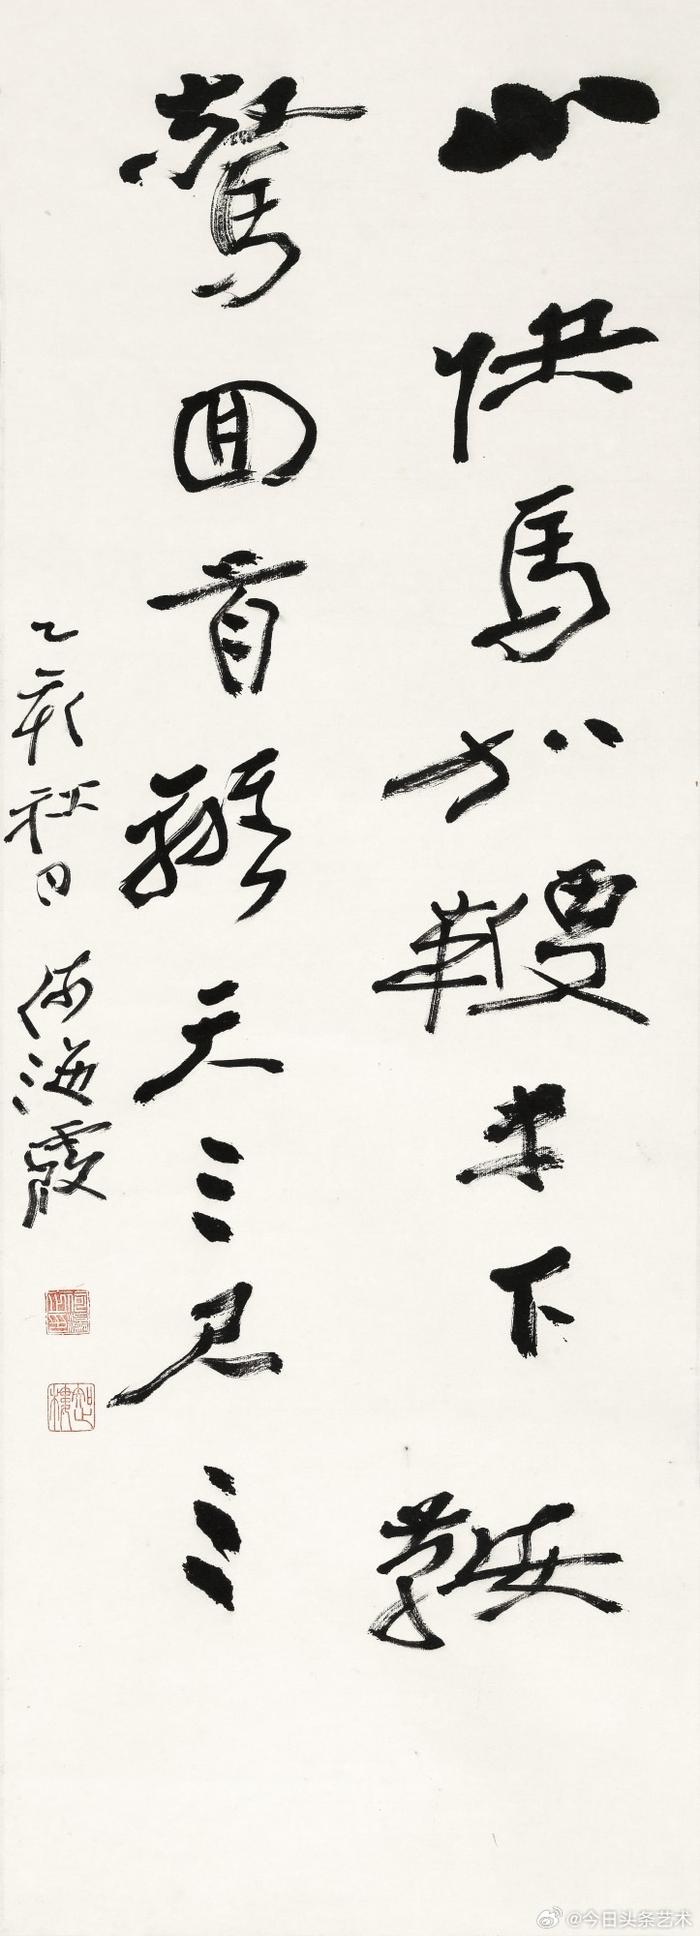 山快馬加鞭未下鞍
驚回首離天三尺三
乙亥秋日 何海霞
@今日头条艺术